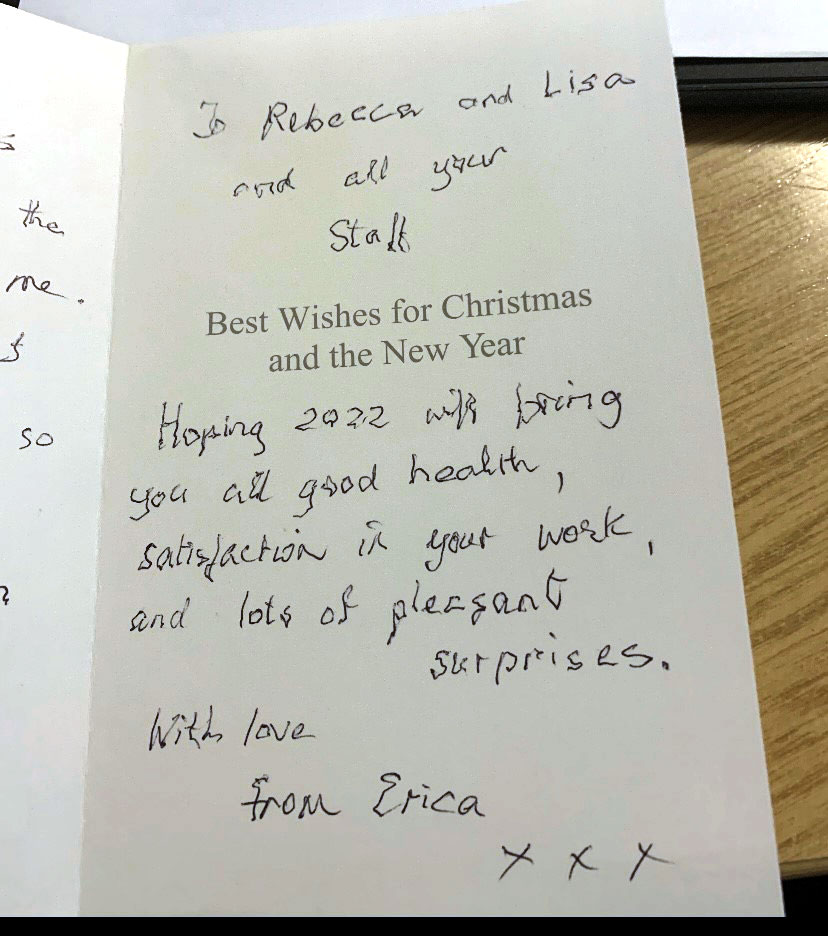 s
the
me.
so
To Rebecca and Lisa
and all your
Staff
Best Wishes for Christmas
and the New Year
Hoping 2022 will bring
you all good health,
satisfaction in your work,
and lots of pleasant
surprises.
With love
from Erica
x x x